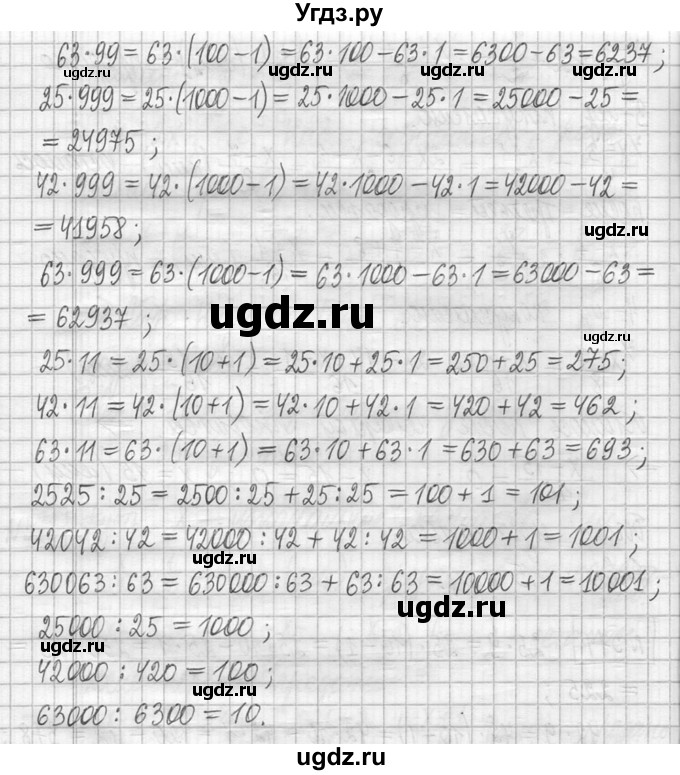 Угдз.ру
63·99 = 63·(100-1) = 63·100-63·1 = 6300-63 = 6237;
ugdz.ru ugdz.ru ugdz.ru ugdz.ru
25·999 = 25·(1000-1) = 25·1000-25·1 = 25000-25 =
= 24975;
42·999 = 42·(1000-1) = 42·1000-42·1 = 42000-42 =
= 41958;
ugdz.ru
63·999 = 63·(1000-1) = 63·1000-63·1 = 63000-63 =
= 62937;
ugdz.ru
ugdz.ru
25·11 = 25·(10+1) = 25·10+25·1 = 250+25 = 275;
42·11 = 42·(10+1) = 42·10+42·1 = 420+42 = 462;
63·11 = 63·(10+1) = 63·10+63·1 = 630+63 = 693;
2525:25 = 2500:25+25:25 = 100+1 = 101;
42042:42 = 42000:42+42:42 = 1000+1 = 1001;
ugdz.ru
630063:63 = 630000:63+63:63 = 10000+1 = 10001;
ugdz.ru
25000:25 = 1000;
ugdz.ru
42000:420 = 100;
ugdz.ru
63000:6300 = 10.
ugdz.ru